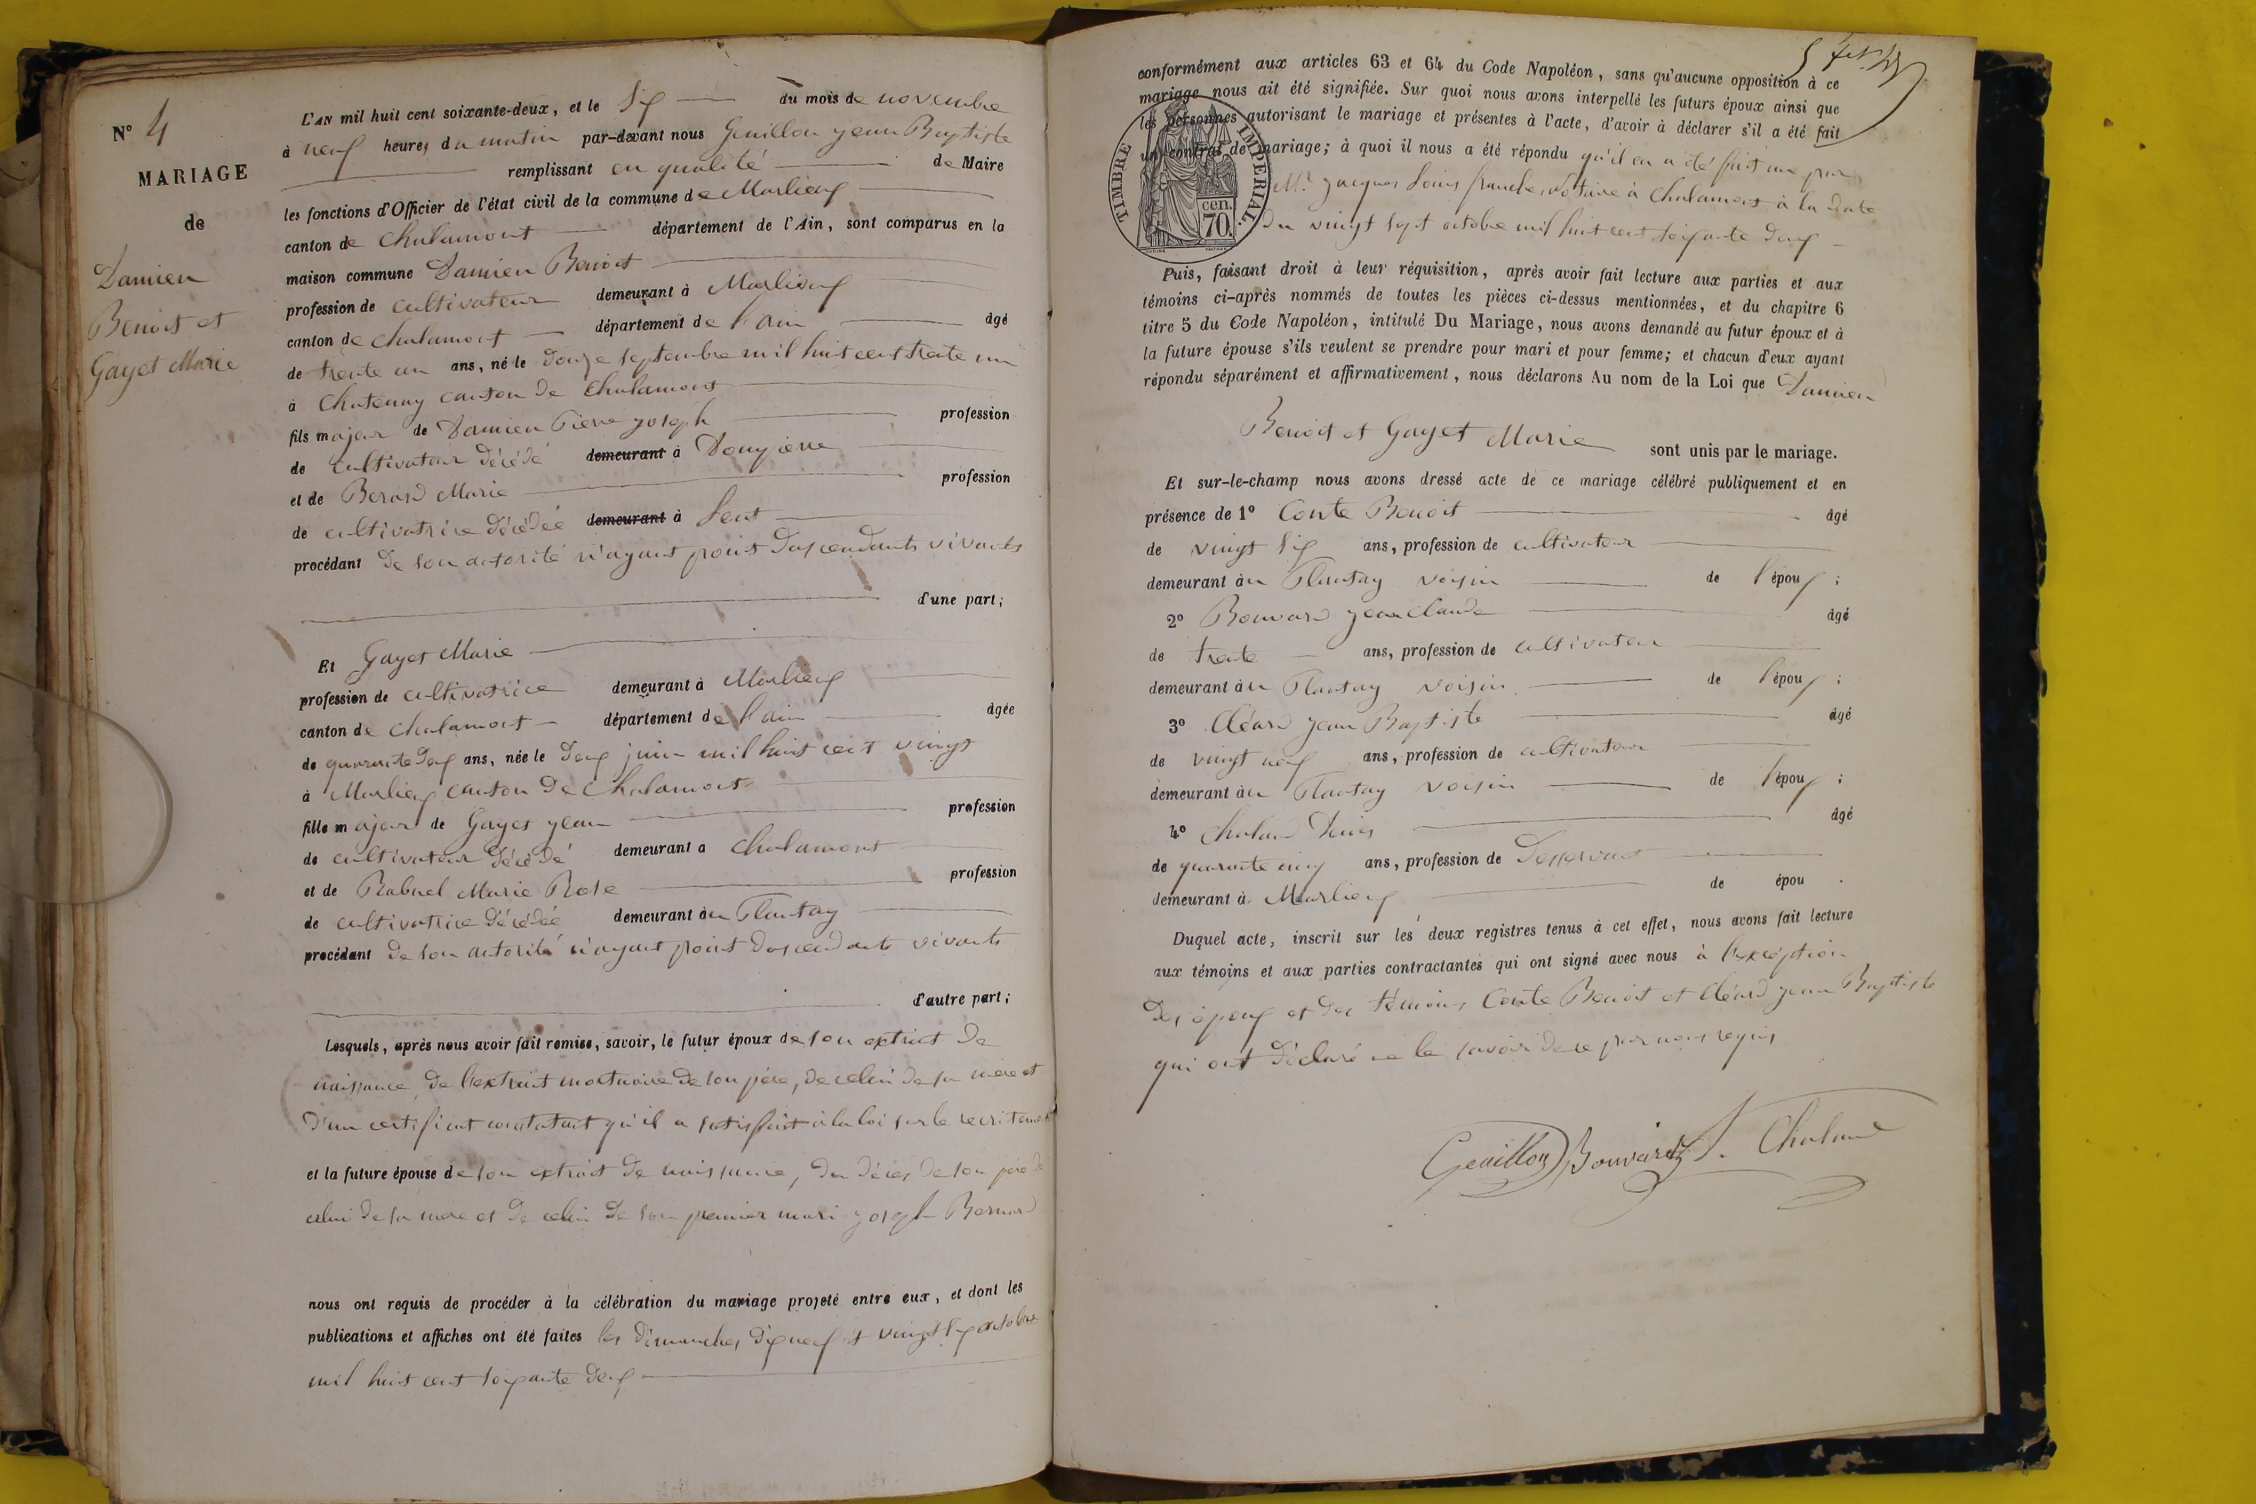 N° 4
MARIAGE
de
Damien
Benoit et
Gayet Marie
L'AN mil huit cent soixante-deux, et le six du mois de novembre
à neuf heures du matin par-devant nous Genillon jean Baptiste
remplissant en qualité de Maire
les fonctions d'Officier de l'état civil de la commune de Marlieux
canton de Chalamont département de l'Ain, sont comparus en la
maison commune Damien Benoit
profession de cultivateur demeurant à Marlieux
canton de chalamont département de l'ain âgé
de trente un ans, né le douze septembre mil huit cent trente un
à Chatenay canton de Chalamont
fils majeur de Damien Pierre joseph profession
de cultivateur décédé demeurant à Dompierre
et de Berard Marie profession
de cultivatrice décédée demeurant à Lent
procédant de son autorité n'ayant point d'ascendants vivants
d'une part;
Et Gayet Marie
profession de cultivatrice demeurant à Marlieux
canton de chalamont département de l'ain âgée
de quarante deux ans, née le deux juin mil huit cent vingt
à Marlieux canton de Chalamont
fille majeur de Gayet jean profession
de cultivateur décédé demeurant à chalamont
et de Rabuel Marie Rose profession
de cultivatrice décédée demeurant au Plantay
procédant de son autorité n'ayant point d'ascendants vivants
d'autre part;
Lesquels, après nous avoir fait remise, savoir, le futur époux de son extrait de
naissance, de l'extrait mortuaire de son père, de celui de sa mère et
d'un certificat constatant qu'il a satisfait à la loi sur le recrutement
et la future épouse de son extrait de naissance, du décès de son père de
celui de sa mère et de celui de son premier mari joseph Bernard
nous ont requis de procéder à la célébration du mariage projeté entre eux, et dont les
publications et affiches ont été faites les dimanches dixneuf et vingt six octobre
mil huit cent soixante deux
conformément aux articles 63 et 64 du Code Napoléon, sans qu'aucune opposition à ce
mariage nous ait été signifiée. Sur quoi nous avons interpellé les futurs époux ainsi que
les personnes autorisant le mariage et présentes à l'acte, d'avoir à déclarer s'il a été fait
un contrat de mariage; à quoi il nous a été répondu qu'il en a été fait un par
Mr. jacques Louis franche Notaire à Chalamont à la date
du vingt sept octobre mil huit cent soixante deux
TIMBRE IMPERIAL.
cen.
70.
Puis, faisant droit à leur réquisition, après avoir fait lecture aux parties et aux
témoins ci-après nommés de toutes les pièces ci-dessus mentionnées, et du chapitre 6
titre 5 du Code Napoléon, intitulé Du Mariage, nous avons demandé au futur époux et à
la future épouse s'ils veulent se prendre pour mari et pour femme; et chacun d'eux ayant
répondu séparément et affirmativement, nous déclarons Au nom de la Loi que Damien
Benoit et Gayet Marie sont unis par le mariage.
Et sur-le-champ nous avons dressé acte de ce mariage célébré publiquement et en
présence de 1° Conte Benoit âgé
de vingt six ans, profession de cultivateur
demeurant au Plantay voisin de l'époux;
2° Bouvard jean claude âgé
de trente ans, profession de cultivateur
demeurant au Plantay voisin de l'époux;
3° Cléard jean Baptiste âgé
de vingt neuf ans, profession de cultivateur
demeurant au Plantay voisin de l'époux;
4° Chaland Denis âgé
de quarante cinq ans, profession de Desservant
demeurant à Marlieux de épou .
Duquel acte, inscrit sur les deux registres tenus à cet effet, nous avons fait lecture
aux témoins et aux parties contractantes qui ont signé avec nous à l'exception
des époux et des témoins Conte Benoit et Cléard jean Baptiste
qui ont déclaré ne le savoir de ce par nous requis
Genillon Bouvard Chaland